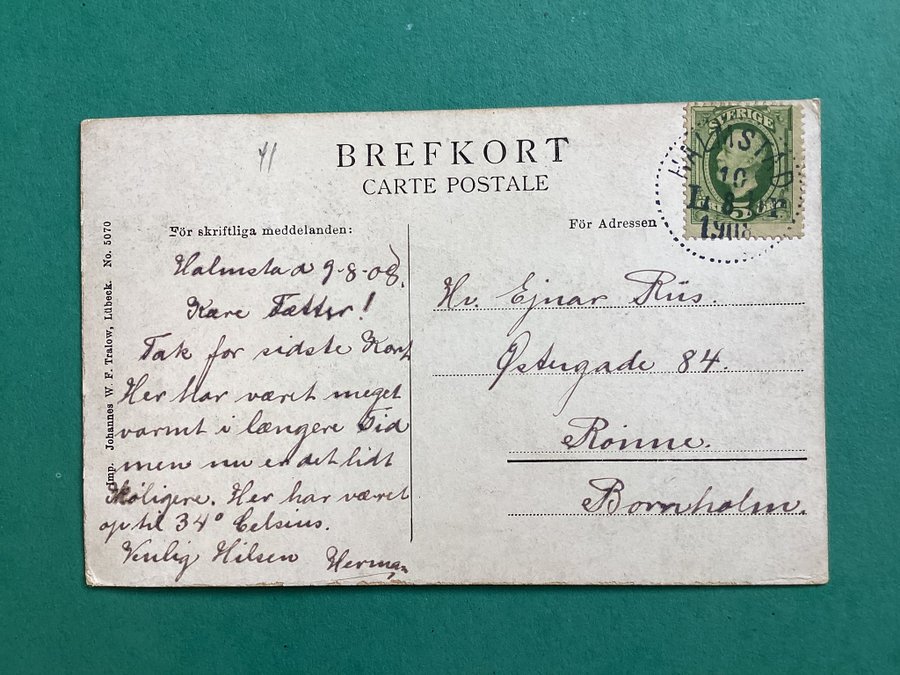 41
BREFKORT
CARTE POSTALE
SVERIGE
5
HALMSTAD
10
8
1908
För skriftliga meddelanden:
För Adressen
Imp. Johannes W. F. Tralow, Lübeck. No. 5070
Halmstad 9-8-08.
Kære Fætter!
Tak for sidste Kort
Her har været meget
varmt i længere Tid
men nu er det lidt
Køligere. Her har været
op til 34° Celsius.
Venlig Hilsen Herman
Hr. Ejnar Riis.
Østergade 84.
Rønne.
Bornholm.